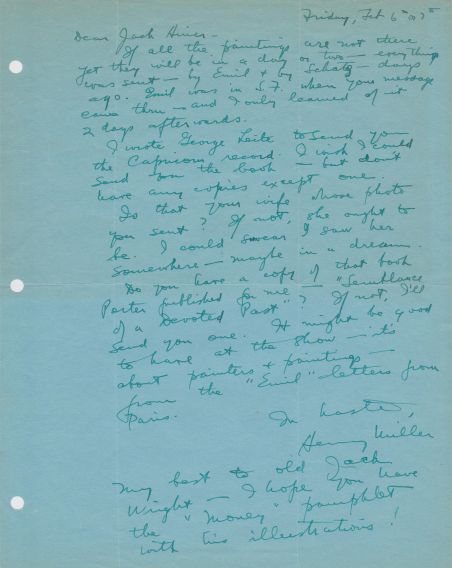 Friday, Feb 6th
Dear Jack
If all the paintings are not there
yet they will be in a day or two — everything
was sent — by Emil & by Schatz — days
ago. Emil was in S.F. when your message
came thru — and I only learned of it
2 days afterwards.
I wrote George Leite to send you
the Capricorn record. I wish I could
send you the book — but don't
have any copies except one.
Is that your wife whose photo
you sent? If not, she ought to
be. I could swear I saw her
somewhere — maybe in a dream.
Do you have a copy of that book
Porter published for me — "Semblance
of a Devoted Past"? If not, I'll
send you one. It might be good
to have at the show — it's
about painters & paintings —
from the "Emil" letters from
Paris.
In haste,
Henry Miller
My best to old Jack
Wright — I hope you have
the "Money" pamphlet
with his illustrations!